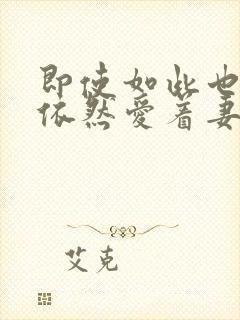 即使如此也
依然爱着妻
艾克